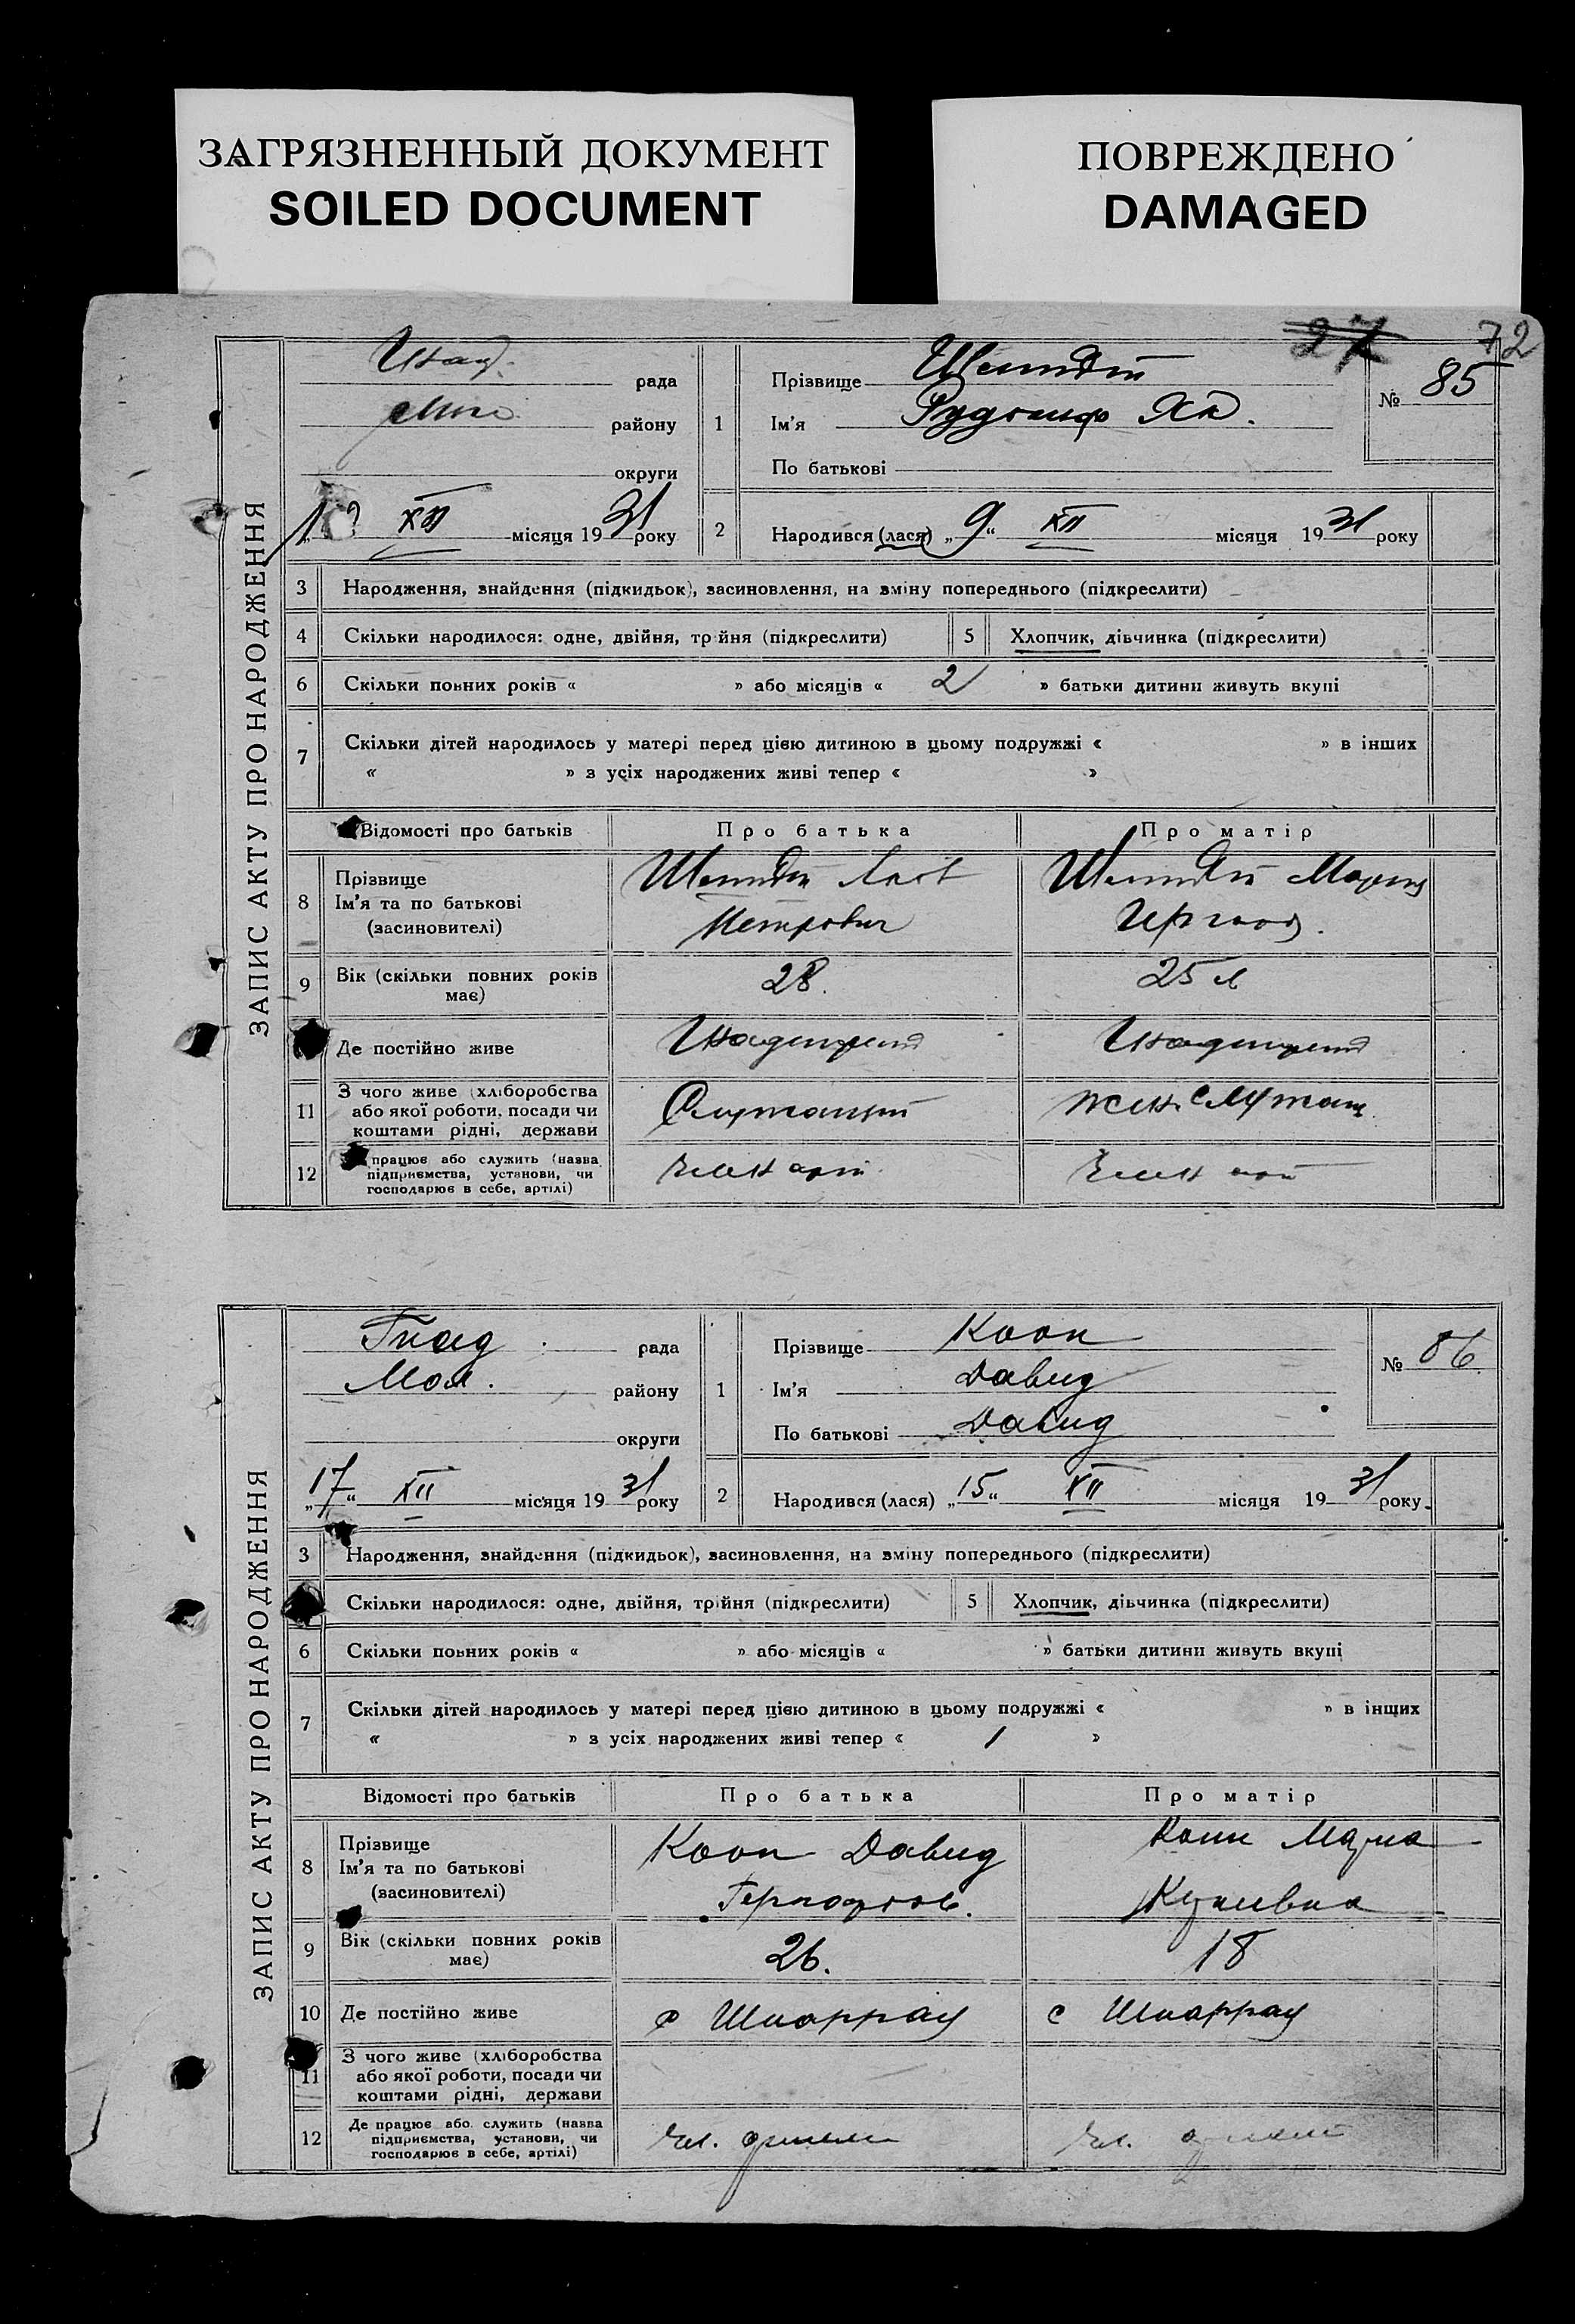 ЗАГРЯЗНЕННЫЙ ДОКУМЕНТ
SOILED DOCUMENT
ПОВРЕЖДЕНО
DAMAGED
72
ЗАПИС АКТУ ПРО НАРОДЖЕННЯ
рада
району
округи
XII місяця 1931 року
1 Прізвище Шмидт
Ім'я Рудольф Як.
По батькові
№ 85
2 Народився (лася) „9“ XII місяця 1931 року
3 Народження, знайдення (підкидьок), засиновлення, на зміну попереднього (підкреслити)
4 Скільки народилося: одне, двійня, трійня (підкреслити) 5 Хлопчик, дівчинка (підкреслити)
6 Скільки повних років « » або місяців « 2 » батьки дитини живуть вкупі
7 Скільки дітей народилось у матері перед цією дитиною в цьому подружжі « » в інших
« » з усіх народжених живі тепер « »
Відомості про батьків Про батька Про матір
8 Прізвище Шмидт Шмидт Мария
Ім'я та по батькові Петрович
(засиновителі)
9 Вік (скільки повних років має) 28. 25 л
Де постійно живе
11 З чого живе (хліборобства
або якої роботи, посади чи
коштами рідні, держави
Служащий
жен. служащ
12 працює або служить (назва
підприємства, установи, чи
господарює в себе, артілі)
член арт.
член арт
ЗАПИС АКТУ ПРО НАРОДЖЕННЯ
Гнад. рада
Мол. району
округи
„17“ XII місяця 1931 року
1 Прізвище Кооп
Ім'я Давид
По батькові Давид
№ 86
2 Народився (лася) „15“ XII місяця 1931 року
3 Народження, знайдення (підкидьок), засиновлення, на зміну попереднього (підкреслити)
Скільки народилося: одне, двійня, трійня (підкреслити) 5 Хлопчик, дівчинка (підкреслити)
6 Скільки повних років « » або місяців « » батьки дитини живуть вкупі
7 Скільки дітей народилось у матері перед цією дитиною в цьому подружжі « » в інших
« » з усіх народжених живі тепер « 1 »
Відомості про батьків Про батька Про матір
8 Прізвище Кооп Давид Мария
Ім'я та по батькові
(засиновителі)
9 Вік (скільки повних років має) 26. 18
10 Де постійно живе с Шпаррау с Шпаррау
11 З чого живе (хліборобства
або якої роботи, посади чи
коштами рідні, держави
12 Де працює або служить (назва
підприємства, установи, чи
господарює в себе, артілі)
чл. артели
чл.